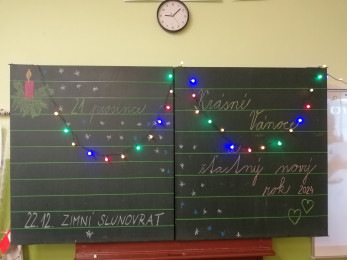 21. prosince
22.12. ZIMNÍ SLUNOVRAT
Krásné
Vánoce
šťastný nový
rok 2024